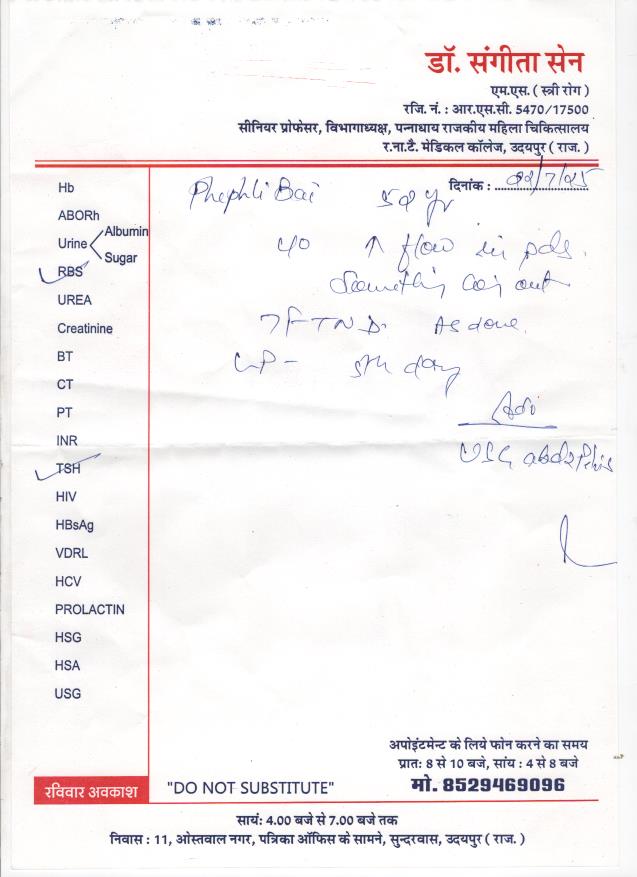 डॉ. संगीता सेन
एम.एस. ( स्त्री रोग )
रजि. नं. : आर.एस.सी. 5470/17500
सीनियर प्रोफेसर, विभागाध्यक्ष, पन्नाधाय राजकीय महिला चिकित्सालय
र.ना.टै. मेडिकल कॉलेज, उदयपुर ( राज. )
दिनांक : 22/7/25
Phephli Bai 52 yr
c/o ↑ flow in pds.
Something out
7 FTND. As done.
LP - 5th day
Adv
USG abd & Pelvis
Hb
ABORh
Urine Albumin
Sugar
RBS
UREA
Creatinine
BT
CT
PT
INR
TSH
HIV
HBsAg
VDRL
HCV
PROLACTIN
HSG
HSA
USG
अपोइंटमेण्ट के लिये फोन करने का समय
प्रात: 8 से 10 बजे, सांय : 4 से 8 बजे
रविवार अवकाश "DO NOT SUBSTITUTE" मो. 8529469096
सायं: 4.00 बजे से 7.00 बजे तक
निवास : 11, ओस्तवाल नगर, पत्रिका ऑफिस के सामने, सुन्दरवास, उदयपुर ( राज. )